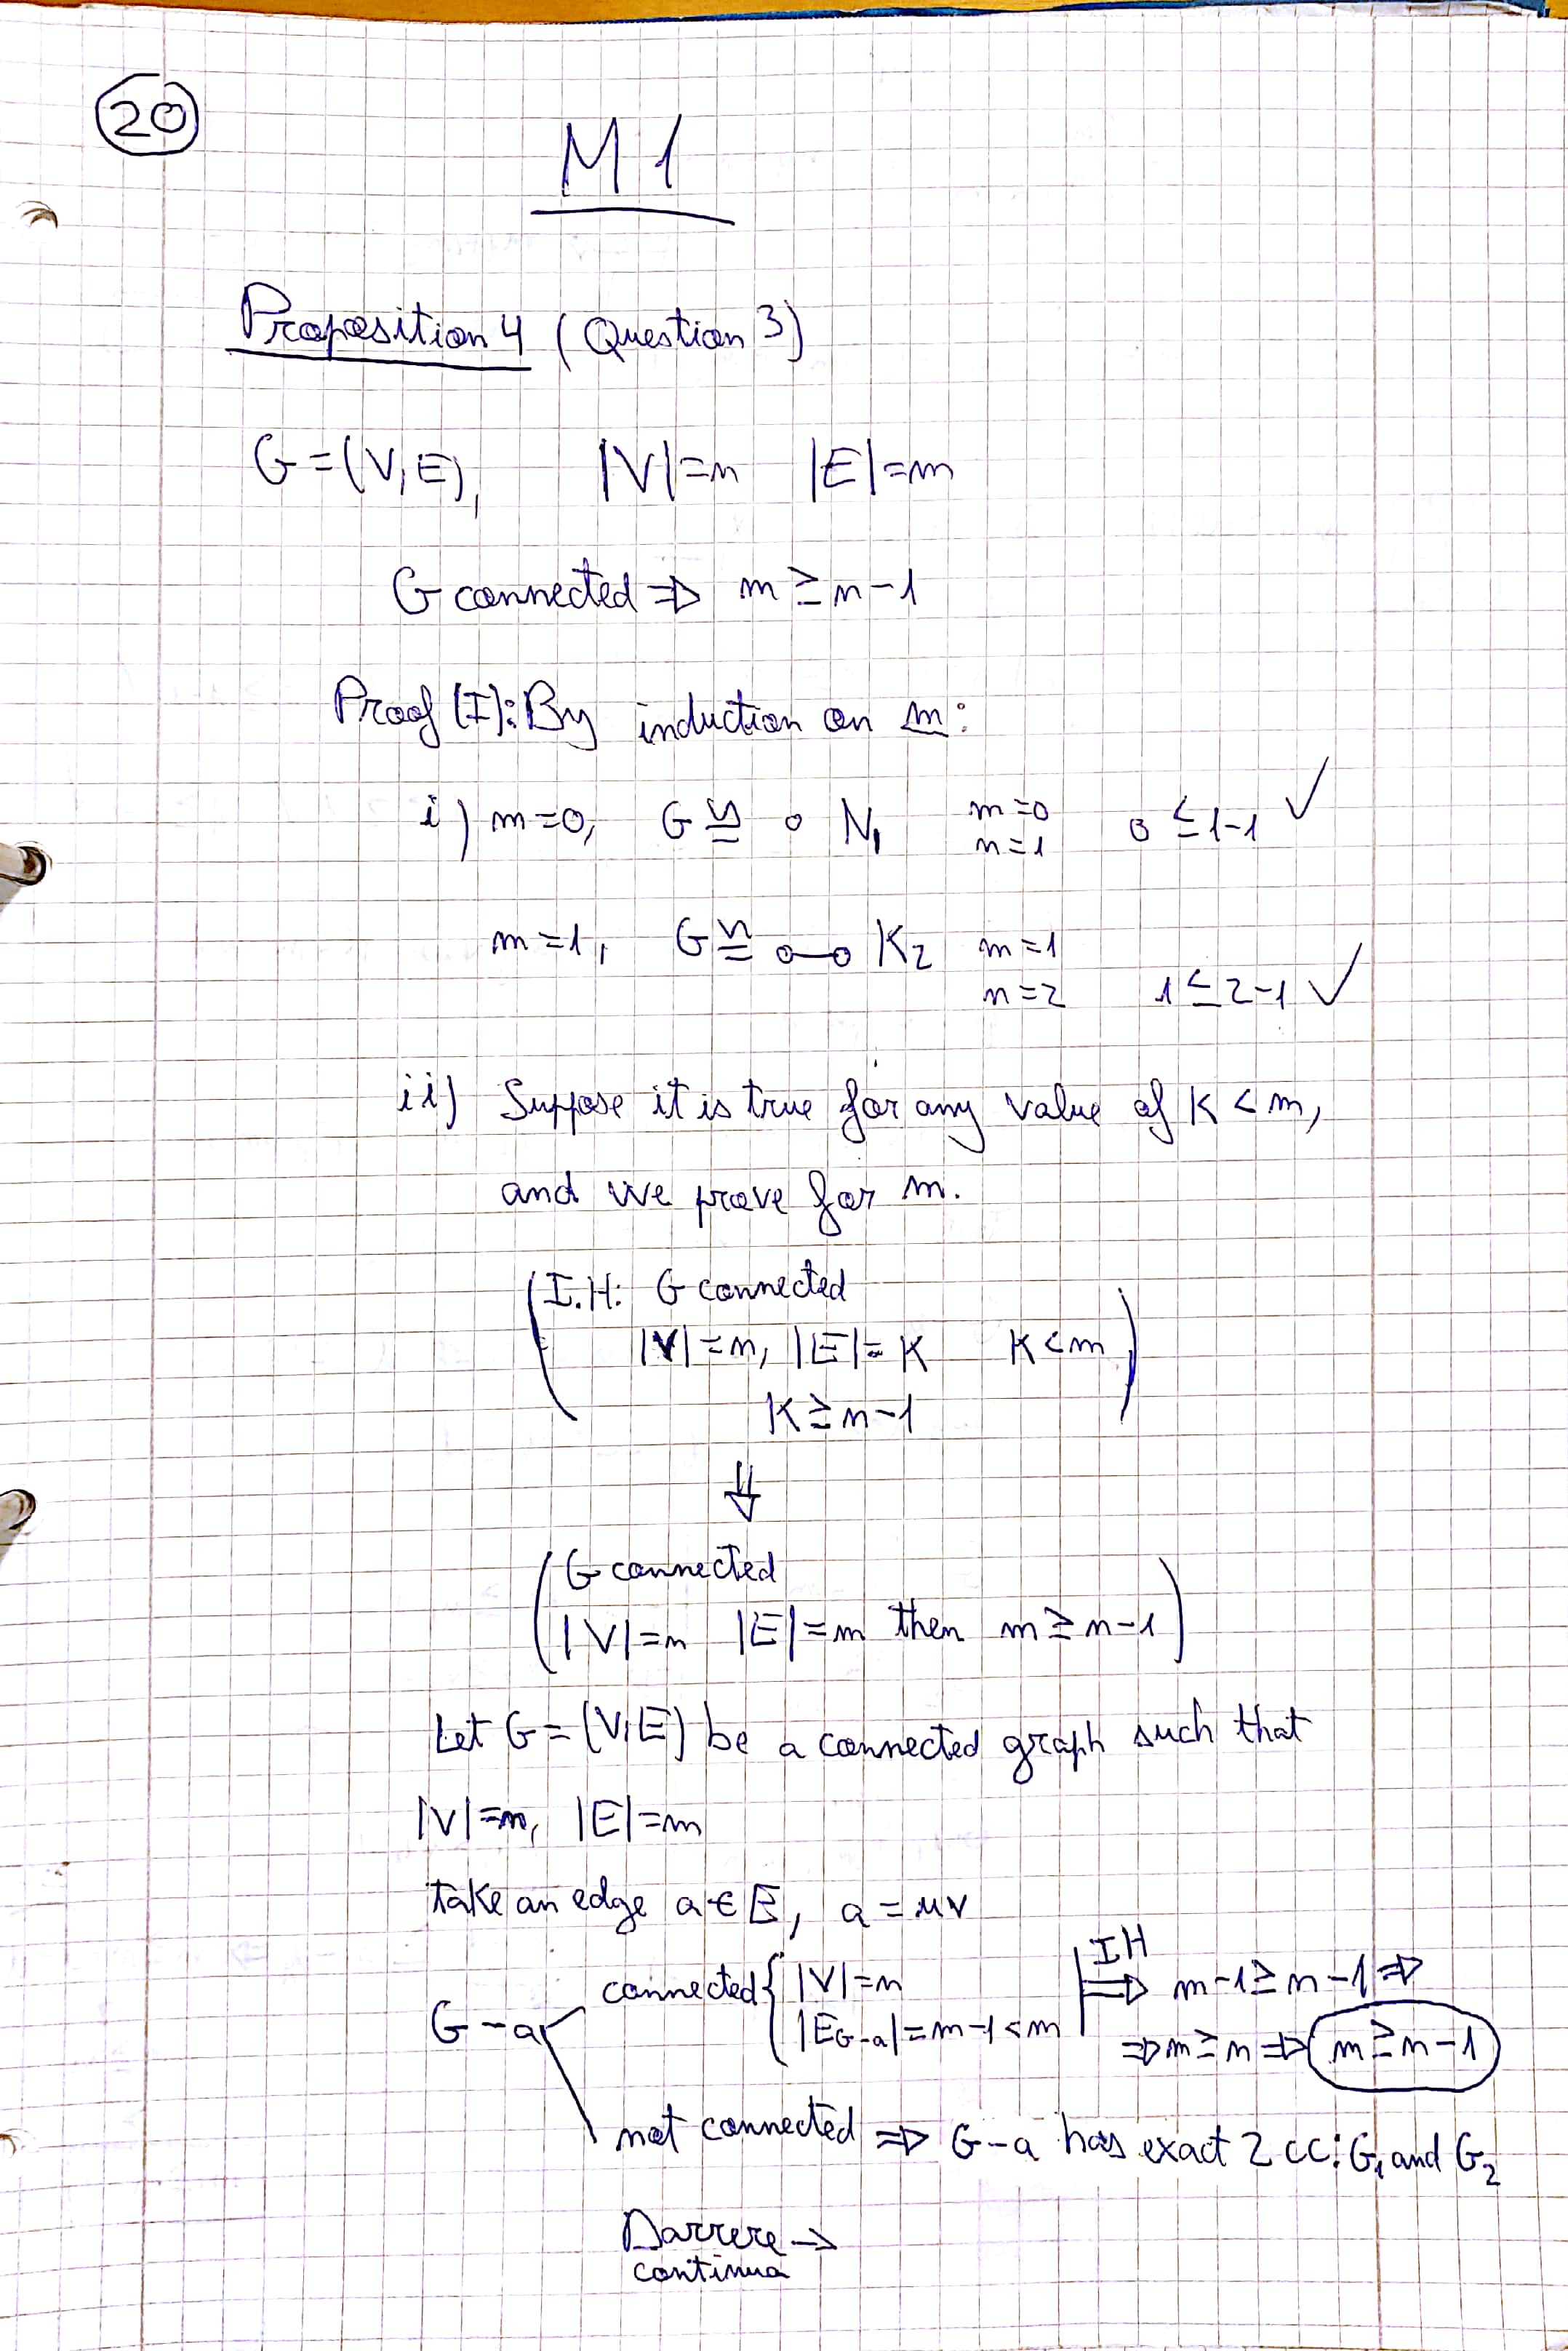 20
M 1
Proposition 4 (Question 3)
G=(V,E), |V|=n |E|=m
G connected ⇒ m ≥ n-1
Proof (I): By induction on m:
i) m=0, G ≅ o N₁ m=0 n=1 0 ≤ 1-1 ✓
m=1, G ≅ o-o K₂ m=1 n=2 1 ≤ 2-1 ✓
ii) Suppose it is true for any value of K < m,
and we prove for m.
(I.H: G connected
|V|=n, |E|=K K<m)
K ≥ n-1
⇓
(G connected
|V|=n |E|=m then m ≥ n-1)
Let G=(V,E) be a connected graph such that
|V|=n, |E|=m
take an edge a ∈ E, a=uv
G-a connected { |V|=n |E_{G-a}|=m-1<m | IH ⇒ m-1 ≥ n-1 ⇒
⇒ m ≥ n ⇒ m ≥ n-1
not connected ⇒ G-a has exact 2 cc: G₁ and G₂
Darrere →
continua